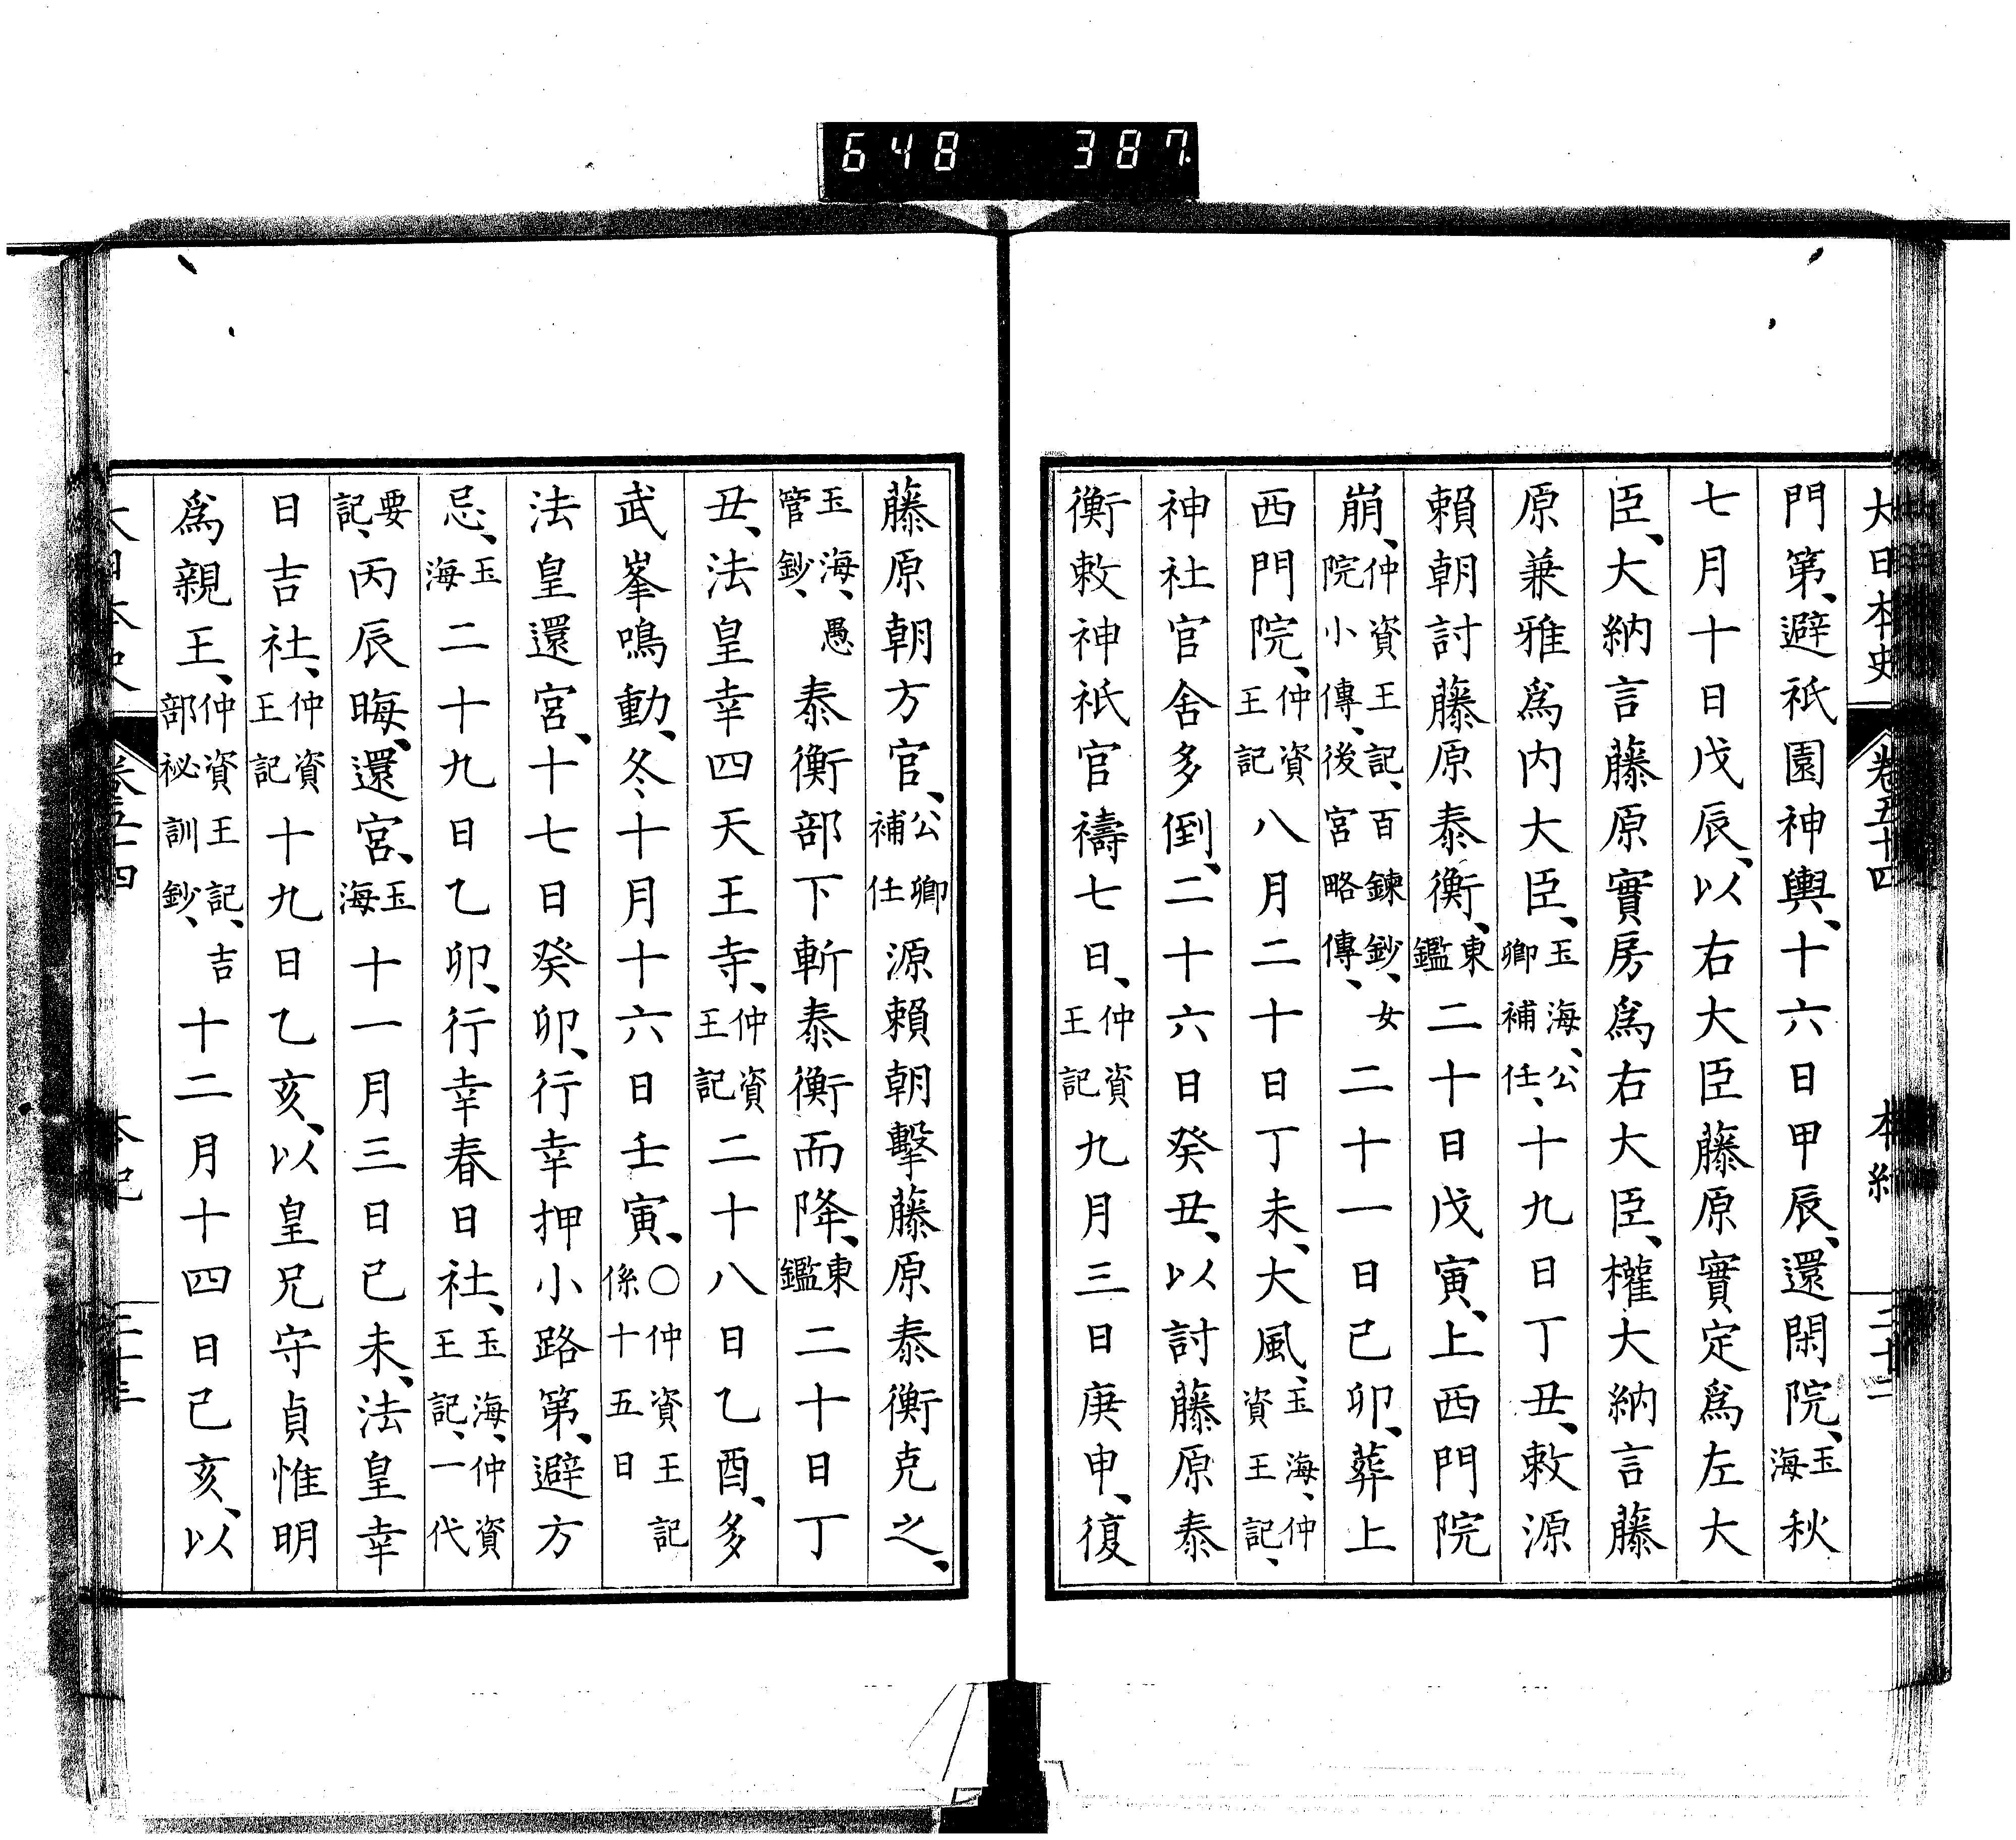 648 387
大日本史 卷五十四 本紀 二十二
門第、避祇園神輿、十六日甲辰、還閑院、玉海秋
七月十日戊辰、以右大臣藤原實定爲左大
臣、大納言藤原實房爲右大臣、權大納言藤
原兼雅爲内大臣、玉海、公卿補任、十九日丁丑、敕源
賴朝討藤原泰衡、東鑑二十日戊寅、上西門院
崩、仲資王記、百鍊鈔、女院小傳、後宮略傳、二十一日己卯、葬上
西門院、仲資王記八月二十日丁未、大風、玉海、仲資王記、
神社官舍多倒、二十六日癸丑、以討藤原泰
衡敕神祇官禱七日、仲資王記九月三日庚申、復
藤原朝方官、公卿補任源賴朝擊藤原泰衡克之、
玉海、愚管鈔、泰衡部下斬泰衡而降、東鑑二十日丁
丑、法皇幸四天王寺、仲資王記二十八日乙酉、多
武峯鳴動、冬十月十六日壬寅、○仲資王記係十五日
法皇還宮、十七日癸卯、行幸押小路第、避方
忌、玉海二十九日乙卯、行幸春日社、玉海、仲資王記、一代
要記、丙辰晦、還宮、玉海十一月三日己未、法皇幸
日吉社、仲資王記十九日乙亥、以皇兄守貞惟明
爲親王、仲資王記、吉部祕訓鈔、十二月十四日己亥、以